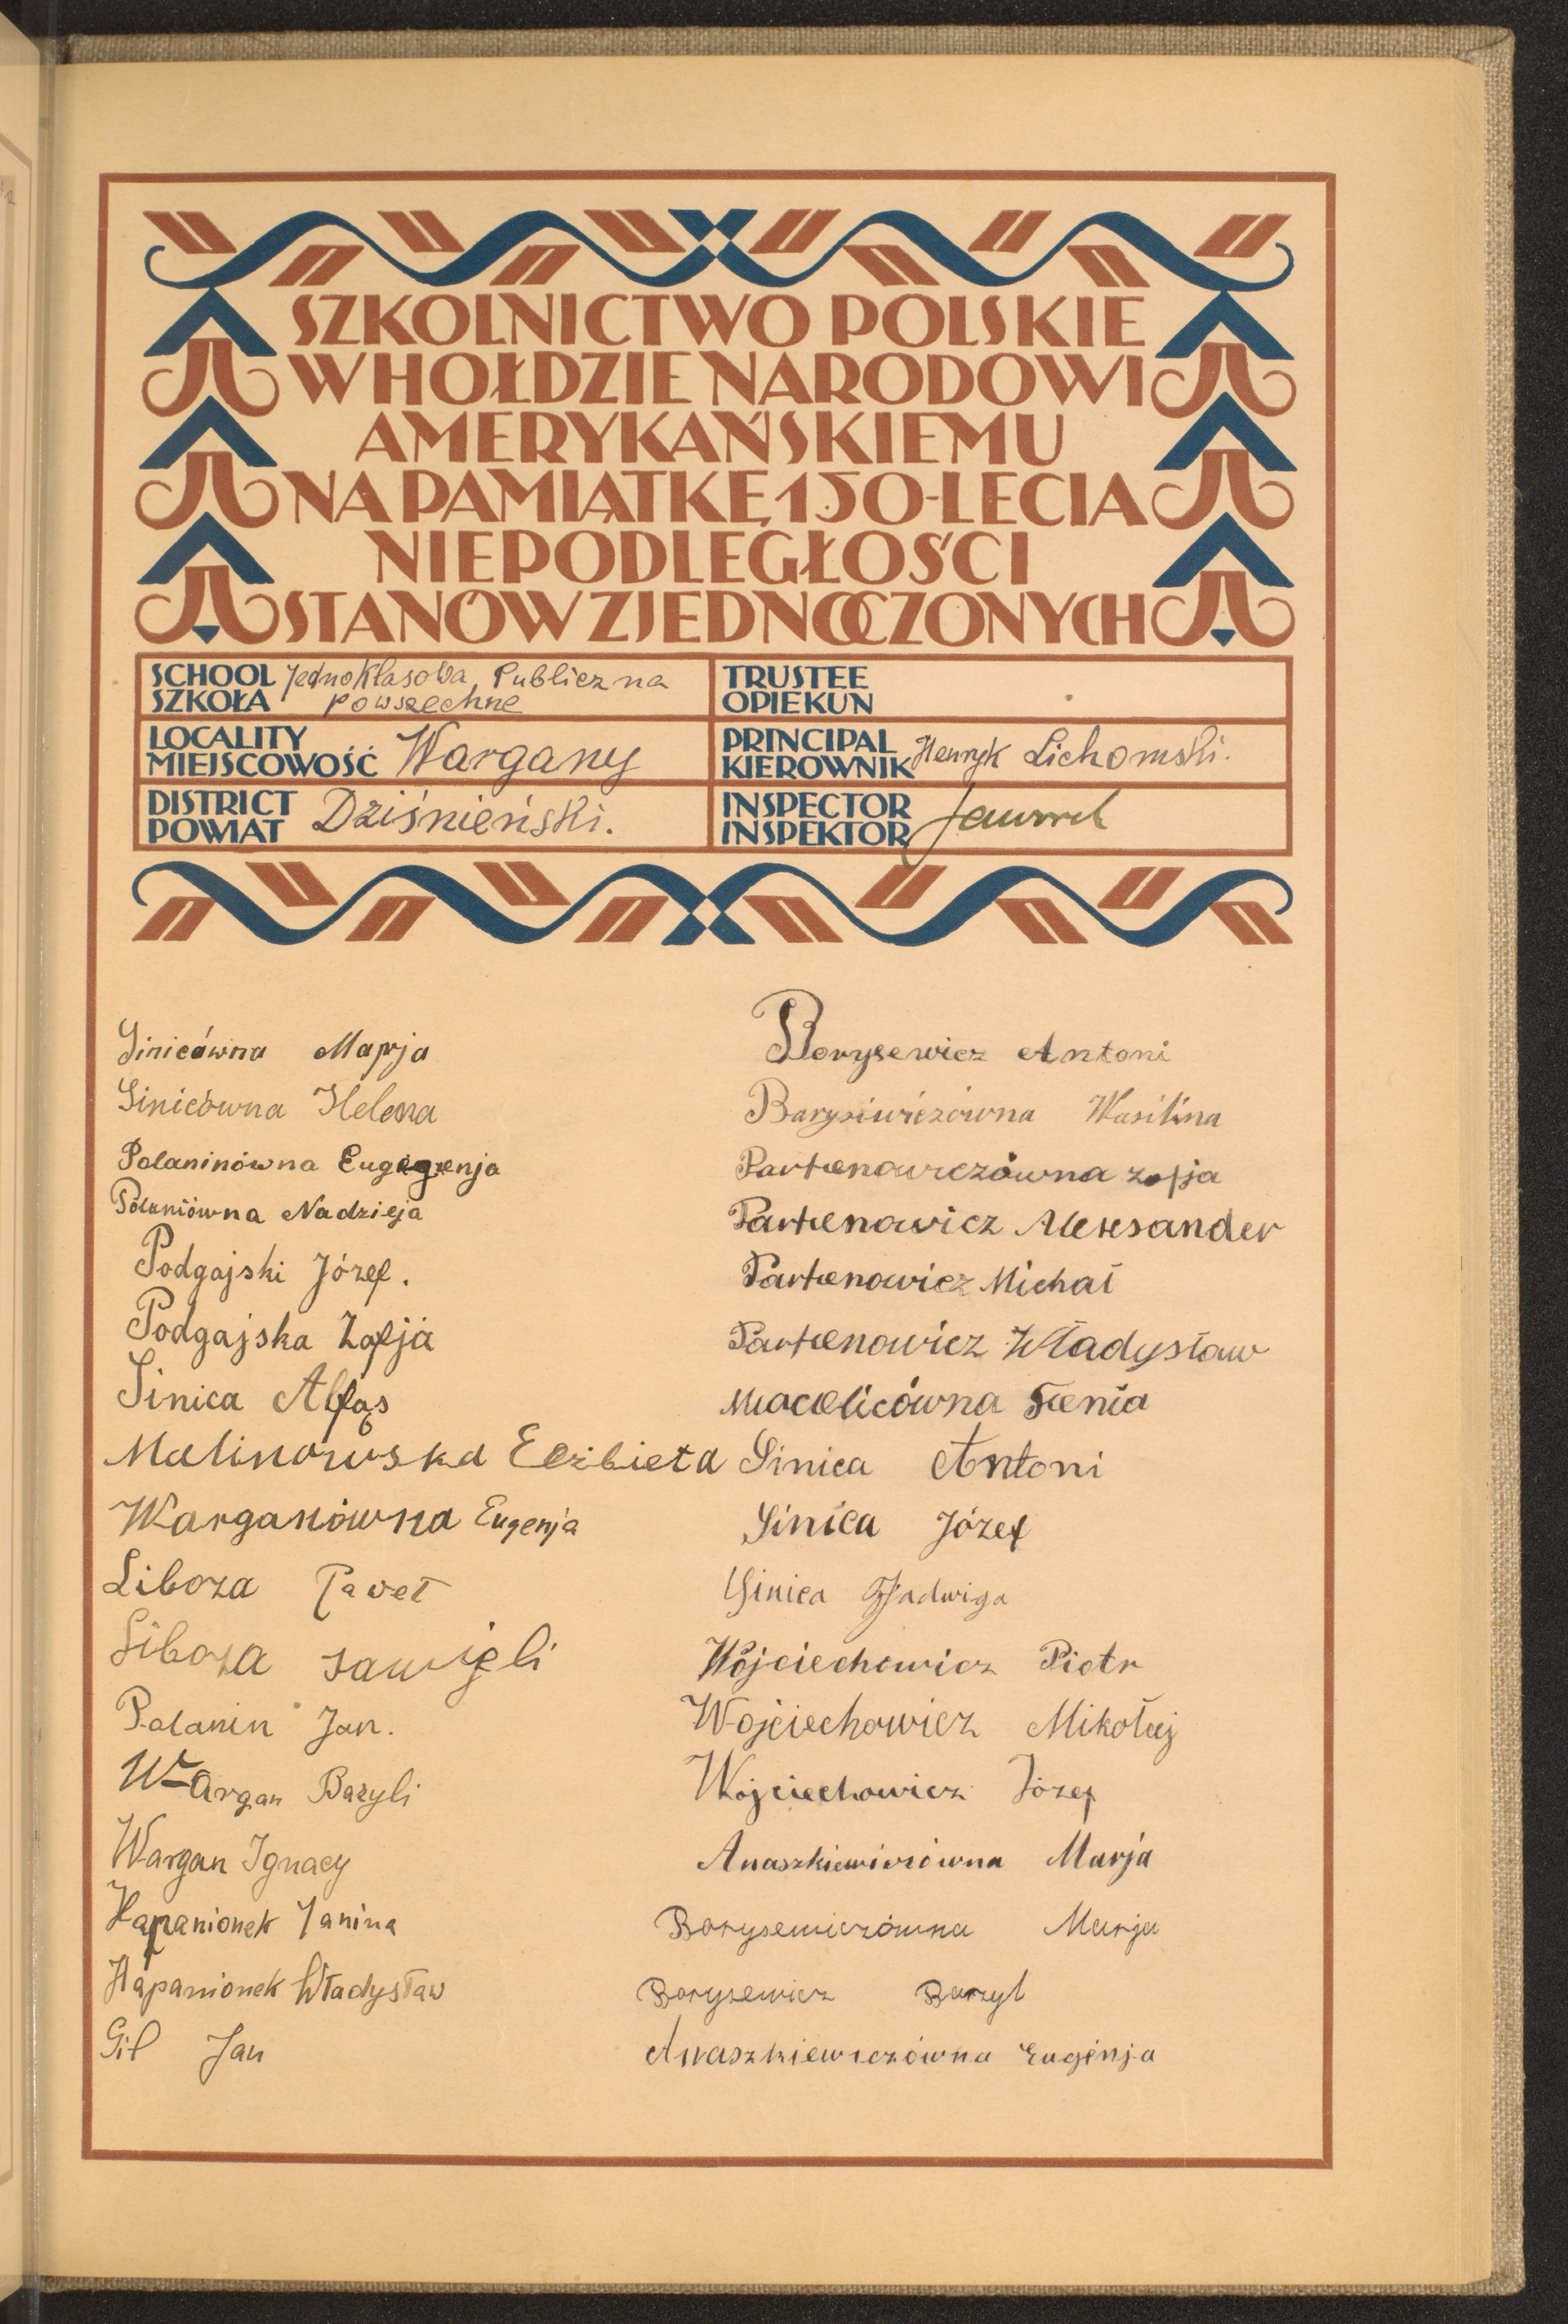 SZKOLNICTWO POLSKIE
W HOŁDZIE NARODOWI
AMERYKAŃSKIEMU
NA PAMIĄTKĘ 150-LECIA
NIEPODLEGŁOŚCI
STANÓW ZJEDNOCZONYCH
SCHOOL
SZKOŁA
Jednokłasowa Publiczna
powszechne
TRUSTEE
OPIEKUN
LOCALITY
MIEJSCOWOŚĆ
Wargany
PRINCIPAL
KIEROWNIK
Henryk Lichomski.
DISTRICT
POWIAT
Dziśnieński.
INSPECTOR
INSPEKTOR
Sinicówna Marja
Sinicówna Helena
Polaninówna
Polaniówna Nadzieja
Podgajski Józef.
Podgajska Zofja
Sinica Alfąs
Malinowska Elżbieta
Warganówna Eugenja
Liboza Paweł
Liboza
Polanin Jan.
Wargan Bazyli
Wargan Ignacy
Hapanionek Janina
Hapanionek Władysław
Gil Jan
Borysewicz Antoni
Barysiwiczówna Wasilina
Partenowiczówna Zofja
Partenowicz Aleksander
Partenowicz Michał
Partenowicz Władysław
Sinica Antoni
Sinica Józef
Sinica Jadwiga
Wojciechowicz Piotr
Wojciechowicz Mikołaj
Wojciechowicz Józef
Anaszkiewiczówna Marja
Borysewiczówna Marja
Borysewicz Bazyl
Anaszkiewiczówna Eugenja